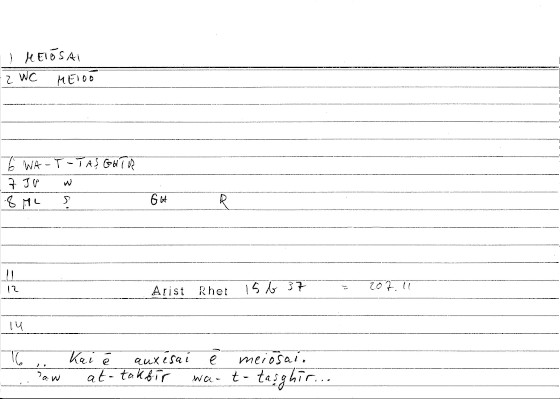 1 MEIŌSAI
2 WC MEIOŌ
6 WA-T-TAṢGHĪR
7 JP W
8 ML Ṣ GH R
11
12 Arist Rhet 15 b 37 = 207.11
14
16 .. Kai ē auxēsai ē meiōsai.
... ʾaw at-takbīr wa-t-taṣghīr...